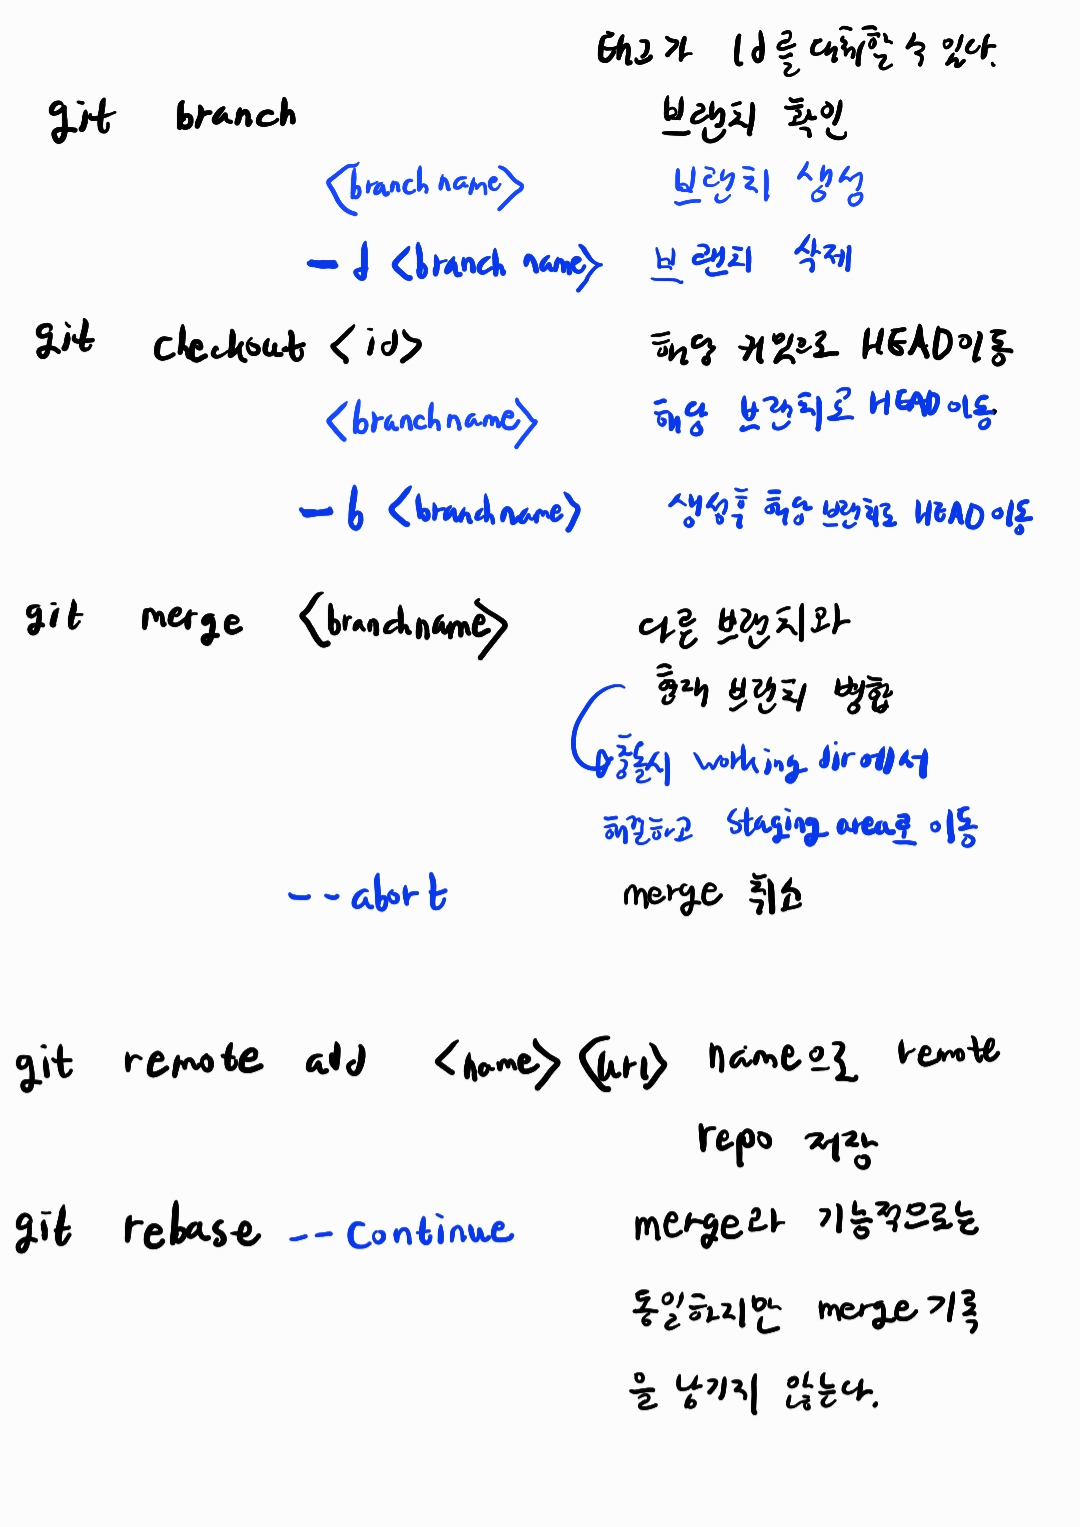 태그가 id를 대체할 수 있다.
git branch 브랜치 확인
<branch name> 브랜치 생성
-d <branch name> 브랜치 삭제
git checkout <id> 해당 커밋으로 HEAD 이동
<branch name> 해당 브랜치로 HEAD 이동
-b <branch name> 생성후 해당 브랜치로 HEAD 이동
git merge <branch name> 다른 브랜치와
현재 브랜치 병합
충돌시 working dir에서
해결하고 staging area로 이동
--abort merge 취소
git remote add <name> <url> name으로 remote
repo 저장
git rebase --continue merge와 기능적으로는
동일하지만 merge 기록
을 남기지 않는다.